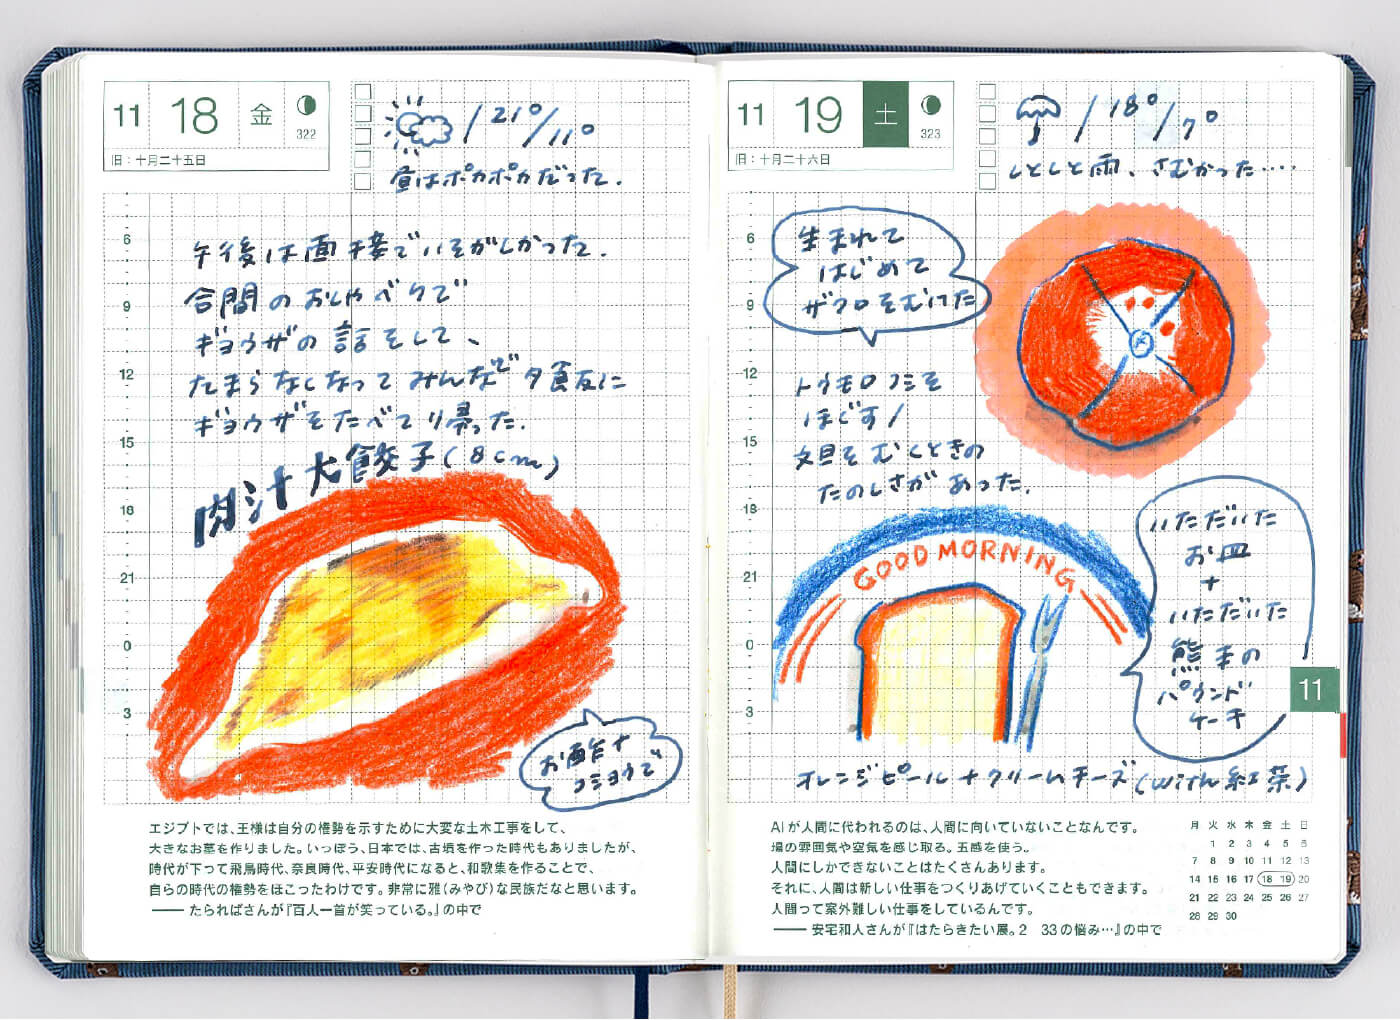 11 18 金
322
旧：十月二十五日
/ 21°/11°
昼はポカポカだった.
6
9
12
15
18
21
0
3
午後は面接でいそがしかった.
合間のおしゃべりで
ギョウザの話をして、
たまらなくなってみんなで夕食に
ギョウザをたべてり帰った.
肉汁大餃子(8cm)
お酢+
コショウで
エジプトでは、王様は自分の権勢を示すために大変な土木工事をして、
大きなお墓を作りました。いっぽう、日本では、古墳を作った時代もありましたが、
時代が下って飛鳥時代、奈良時代、平安時代になると、和歌集を作ることで、
自らの時代の権勢をほこったわけです。非常に雅(みやび)な民族だなと思います。
――たらればさんが『百人一首が笑っている。』の中で
11 19 土
323
旧：十月二十六日
/ 18°/7°
しとしと雨、さむかった....
6
9
12
15
18
21
0
3
生まれて
はじめて
ザクロをむいた
トウモロコシを
ほぐす/
文旦をむくときの
たのしさがあった.
GOOD MORNING
いただいた
お皿
+
いただいた
熊手の
パウンド
ケーキ
11
オレンジピール+クリームチーズ(with 紅茶)
AIが人間に代われるのは、人間に向いていないことなんです。
場の雰囲気や空気を感じ取る。五感を使う。
人間にしかできないことはたくさんあります。
それに、人間は新しい仕事をつくりあげていくこともできます。
人間って案外難しい仕事をしているんです。
――安宅和人さんが『はたらきたい展。2 33の悩み…』の中で
月 火 水 木 金 土 日
1 2 3 4 5 6
7 8 9 10 11 12 13
14 15 16 17 18 19 20
21 22 23 24 25 26 27
28 29 30